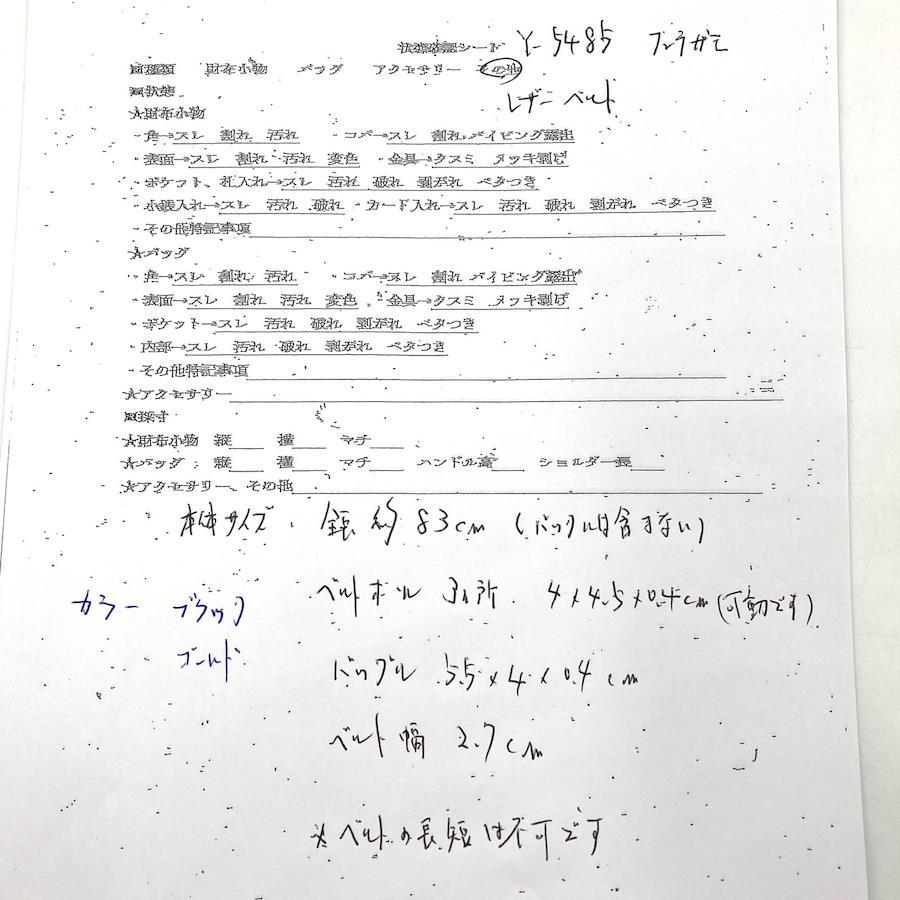 状態確認シート Y-5485 フェラガモ
■種類 財布小物 バッグ アクセサリー その他
レザーベルト
■状態
★財布小物
・角→スレ 割れ 汚れ ・コバ→スレ 割れ パイピング露出
・表面→スレ 割れ 汚れ 変色 ・金具→クスミ メッキ剥げ
・ポケット、札入れ→スレ 汚れ 破れ 剥がれ ベタつき
・小銭入れ→スレ 汚れ 破れ ・カード入れ→スレ 汚れ 破れ 剥がれ ベタつき
・その他特記事項
★バッグ
・角→スレ 割れ 汚れ ・コバ→スレ 割れ パイピング露出
・表面→スレ 割れ 汚れ 変色 ・金具→クスミ メッキ剥げ
・ポケット→スレ 汚れ 破れ 剥がれ ベタつき
・内部→スレ 汚れ 破れ 剥がれ ベタつき
・その他特記事項
★アクセサリー
■採寸
★財布小物 縦 横 マチ
★バッグ: 縦 横 マチ ハンドル高 ショルダー長
★アクセサリー、その他
本体サイズ. 全長 約 83cm (バックルは含まない)
カラー ブラック ベルトホール 3ヵ所. 4×4.5×0.4cm (可動です)
ゴールド
バックル 5.5×4×0.4cm
ベルト幅 2.7cm
※ベルトの長短は不可です